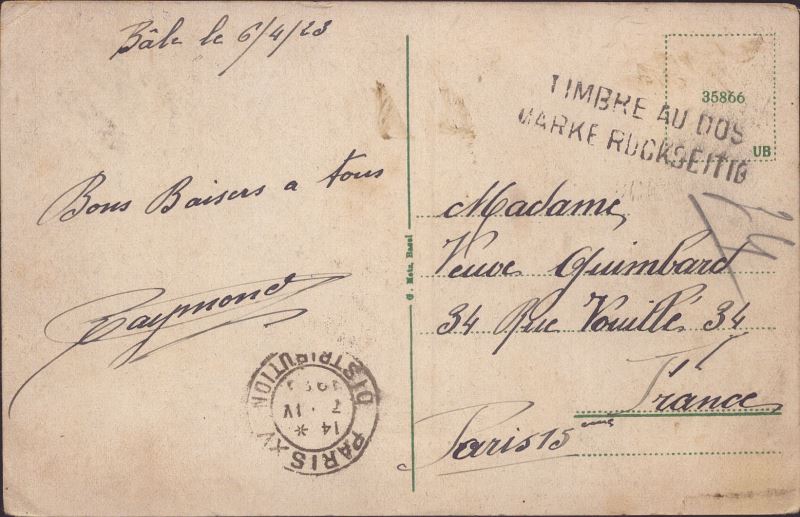 Bâle le 6/4/23
Bons Baisers a tous
Raymond
G. Metz, Basel
35866
UB
TIMBRE AU DOS
MARKE RÜCKSEITIG
Madame
Veuve Guimbard
34 Rue Vouillé 34
France
Paris 15
PARIS XV
DISTRIBUTION
14 *
7 · IV